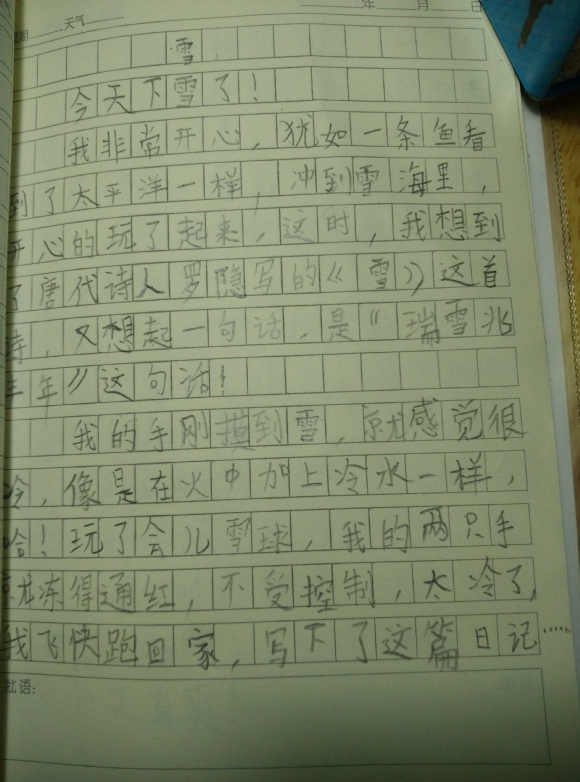 年 月 日
期 天气
雪
今天下雪了！
我非常开心，犹如一条鱼看
到了太平洋一样，冲到雪海里，
开心的玩了起来，这时，我想到
了唐代诗人罗隐写的《雪》这首
诗，又想起一句话，是“瑞雪兆
丰年”这句话！
我的手刚摸到雪，就感觉很
冷，像是在火中加上冷水一样，
哈！玩了会儿雪球，我的两只手
就冻得通红，不受控制，太冷了，
我飞快跑回家，写下了这篇日记……
批语：